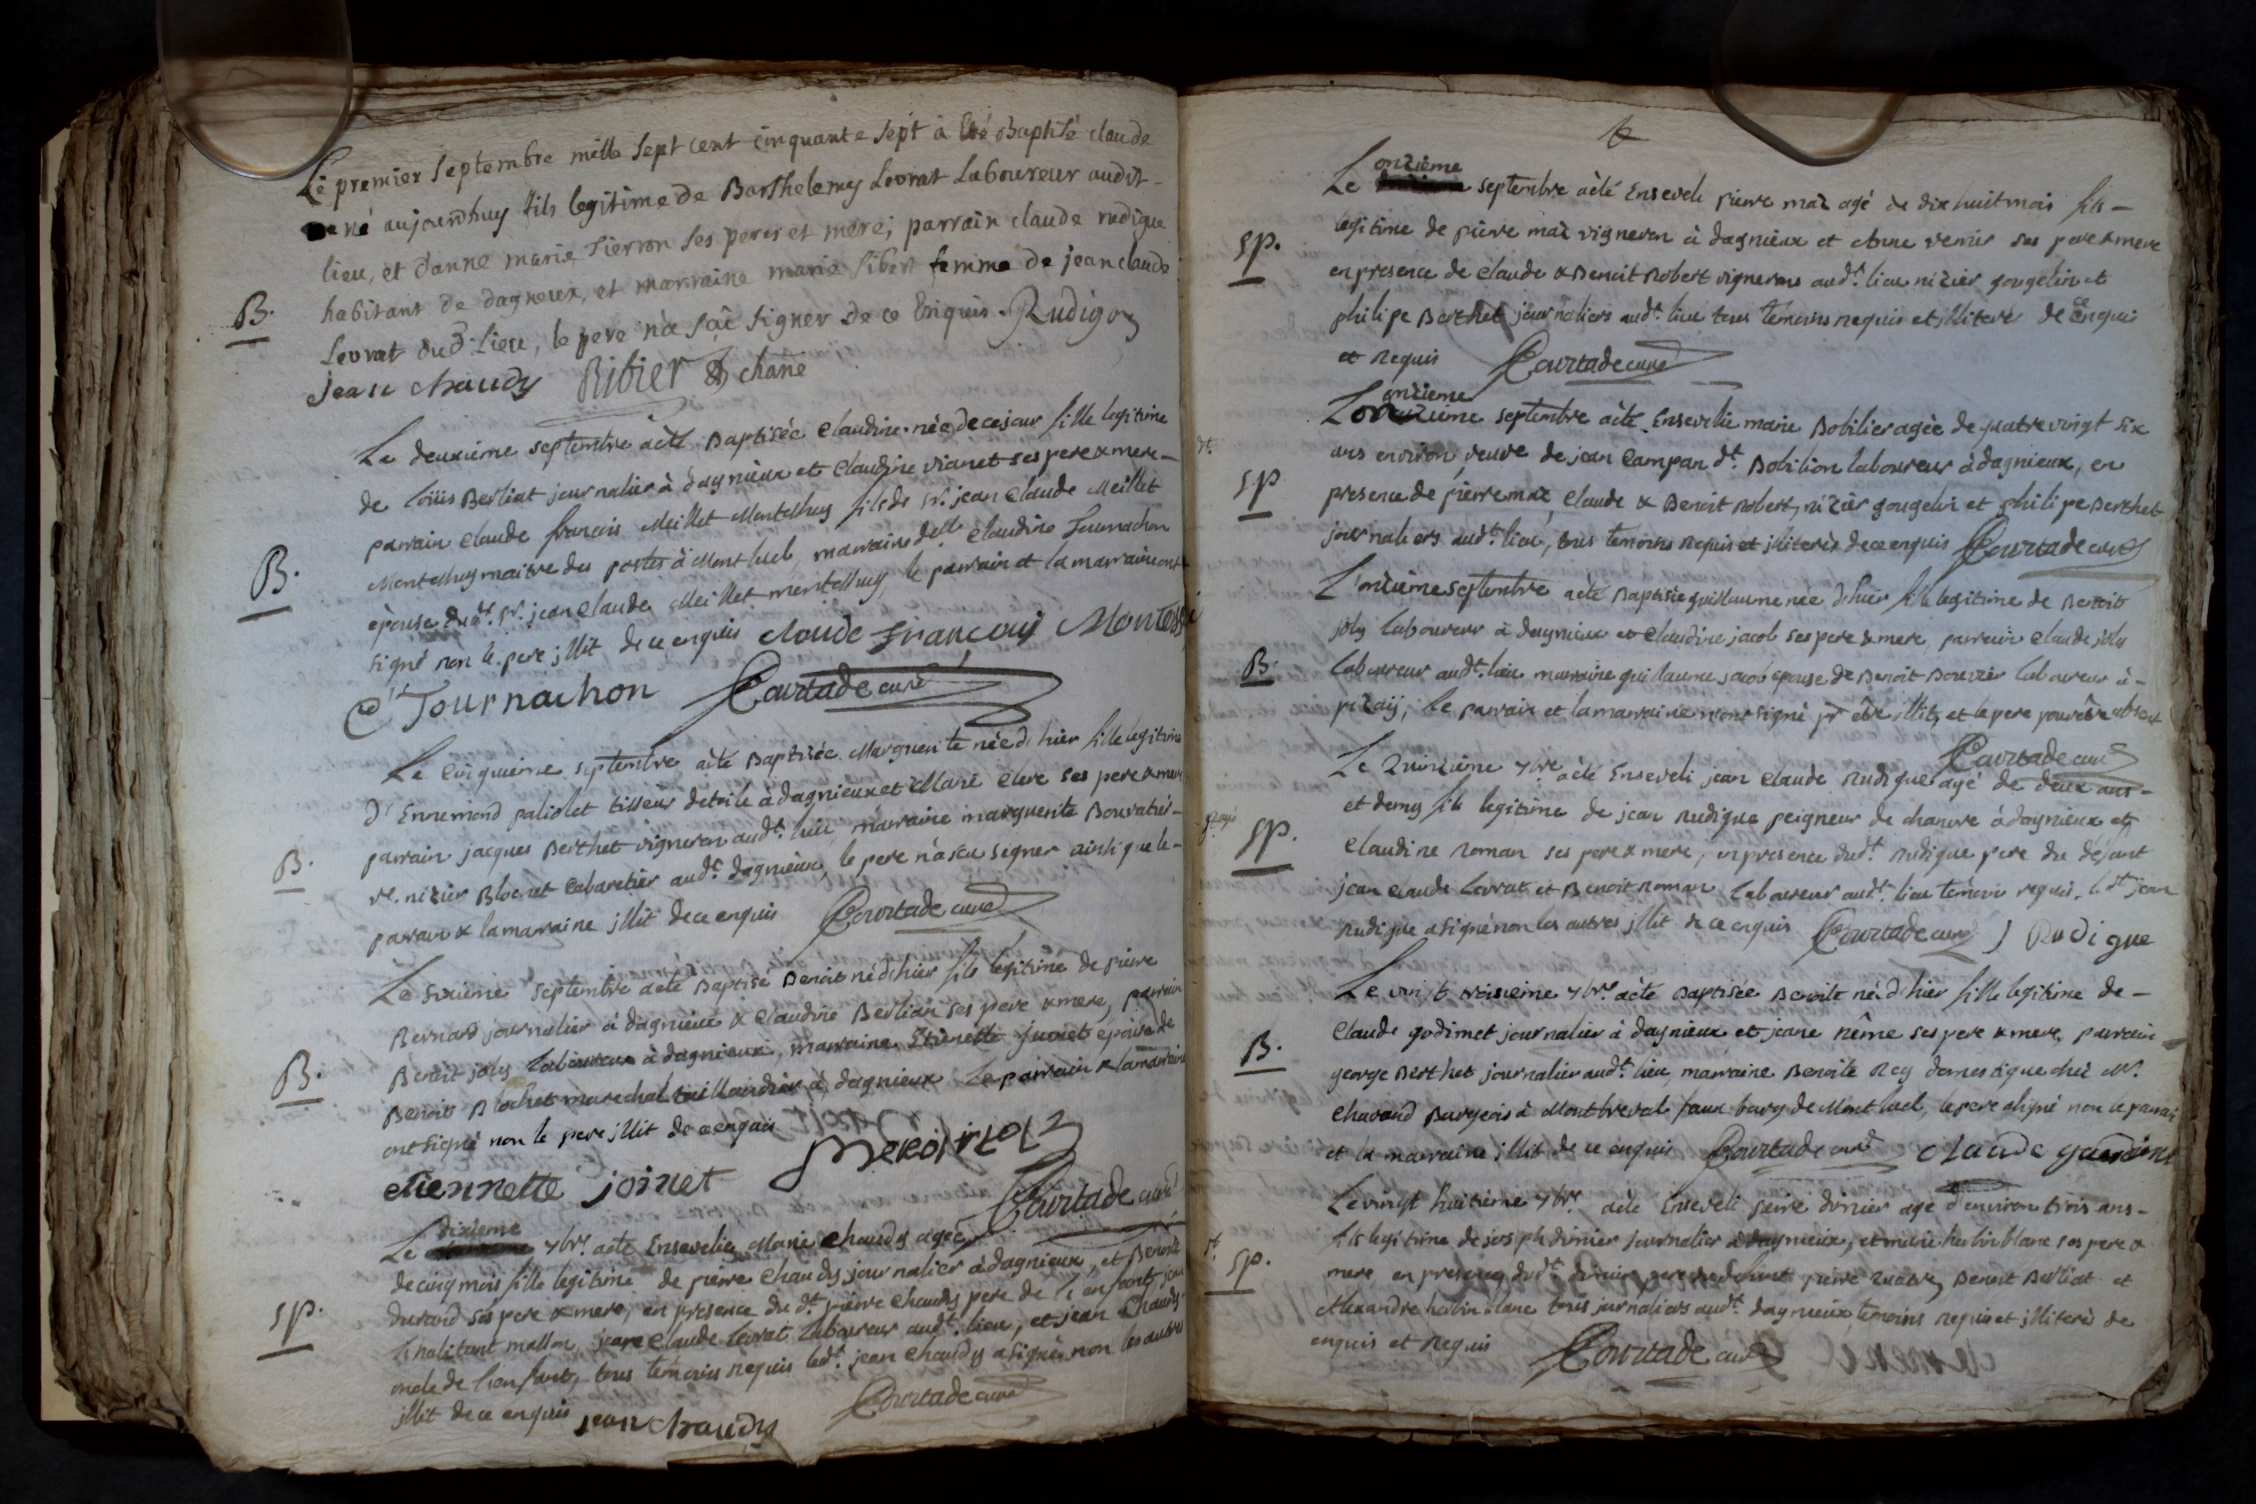 Le premier septembre mille sept cent cinquante sept à été baptisé claude
né aujourdhuy fils legitime de Barthelemy Levrat Laboureur audit
lieu, et danne marie Pierron ses peres et mere; parrain claude rudigue
habitant de dagneux, et marraine marie Ribier femme de jean claude
B.
Levrat dud. Lieu, le pere n'a sçû signer de ce Enquis. Rudigoz
jean chaudy Ribier chane
Le deuxieme septembre àété Baptisée Claudine née de ce jour fille legitime
de loüis Berliat journalier à dagnieux et Claudine vianet ses pere & mere
parrain Claude françois Meillet Montelhuy fils de sr. jean Claude Meillet
Montelhuy maitre des postes à Montluel, marraine delle Claudine Tournachon
B.
épouse dudt. sr. jean Claude Meillet montelhuy, le parrain et la marraine ont
signé non le pere jllit de ce enquis claude françois
Tournachon Courtade curé
Le Cinquieme septembre àété Baptisée Marguerite née d'hier fille legitime
d'Ennemond paliolet tisseur detoile à dagnieux et Marie Clere ses pere & mere
parrain jacques Berthet vigneron audt. lieu, marraine marguerite Bouvatier
B.
ve. nizier Blochet Cabaretier audt. dagnieux, le pere n'a scu signer ainsi que le
parrain & la marraine jllit de ce enquis Courtade curé
Le sixieme septembre àété Baptisé Benoit né d'hier fils legitime de pierre
Bernard journalier à dagnieux & Claudine Berlian ses pere & mere, parrain
Benoit joly laboureur à dagnieux, marraine Etienette juenet epouse de
B.
Benoit Blochet marechal taillandier à dagnieux Le parrain & la marraine
ont signé non le pere jllit de ce enquis
etiennette joinet
Courtade curé
Le dixieme 7bre. àété Ensevelie Marie Chaudy agée
de cinq mois fille legitime de pierre Chaudy journalier à dagnieux, et Benoite
durand ses pere & mere, en presence du dt. pierre Chaudy pere de l'enfant, jean
SP.
Claude Levrat laboureur audt. lieu, et jean Chaudy
oncle de l'enfant, tous temoins requis ledt. jean Chaudy a signé non les autres
jllit de ce enquis jean chaudy Courtade curé
Le onzieme septembre àété Enseveli pierre maz agé de dix huit mois fils
legitime de pierre maz vigneron à dagnieux et Anne venir ses pere & mere
SP.
en presence de Claude & Benoit Robert vignerons audt. lieu nizier gougelin et
philipe Berthet journaliers audt. lieu tous temoins requis et jlliteré de ce enquis
et Requis Courtade curé
onzieme septembre àété Ensevelie marie Bobilier agée de quatre vingt six
ans environ, veuve de jean Campan dt. Bobilion laboureur à dagnieux, en
SP
presence de pierre maz, Claude & Benoit Robert, nizier gougelin et philipe Berthet
journaliers audt. lieu, tous temoins requis et jlliterés de ce enquis Courtade curé
L'onzieme septembre àété Baptisée guillaume née d'hier fille legitime de Benoit
joly laboureur à dagnieux et Claudine jacob ses pere & mere, parrain Claude joly
B.
laboureur audt. lieu marraine guillaume jacob epouse de Benoit Bouvier laboureur à
pizaÿ, le parrain et la marraine n'ont signé pr. etre jllit, et le pere pour être absent
Courtade curé
Le Quinzieme 7bre àété Enseveli jean Claude Rudigue agé de deux ans
et demy fils legitime de jean Rudigue peigneur de chanvre à dagnieux et
SP.
Claudine Roman ses pere & mere, en presence dudt. Rudigue pere du defunt
jean Claude Levrat et Benoit Roman laboureur audt. lieu temoin requis, ledt. jean
Rudigue a signé non les autres jllit de ce enquis Courtade curé J Rudigue
Le vint troisieme 7bre. àété Baptisée Benoite née d'hier fille legitime de
Claude godimet journalier à dagnieux et jeane nême ses pere & mere, parrain
B.
george Berthet journalier audt. lieu, marraine Benoite Rey domestique ché Mr.
Chavand Burgeois à Montbreval faux bourg de Montluel, le pere a signé non le parrain
et la marraine jllit de ce enquis Courtade curé claude
Le vingt huitieme 7bre. àété Enseveli pierre dirnier agé d'environ trois ans
fils legitime de joseph dirnier journalier à dagnieux, et marie herbin blanc ses pere &
SP.
mere en presence dudt. dirnier pere du defunt pierre Quatre, Benoit Berliat et
Alexandre herbin blanc tous journaliers audt. dagnieux, temoins requis et jlliterés de
enquis et Requis Courtade curé